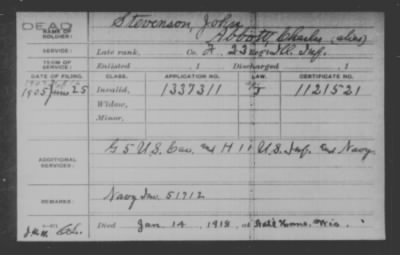 DEAD
NAME OF SOLDIER: Stevenson, John
Abbott, Charles (alias)
SERVICE: Late rank, Co. F, 23 Reg't Ill. Inf.
TERM OF SERVICE: Enlisted , 1 Discharged , 1
DATE OF FILING. CLASS. APPLICATION NO. LAW. CERTIFICATE NO.
1905 June 25 Invalid, 1337311 1121521
Widow,
Minor,
ADDITIONAL SERVICES: G 5 U.S. Cav. and H 11 U.S. Inf. and Navy.
REMARKS: Navy Inv. 51912
Died Jan 14, 1918, at Wis.